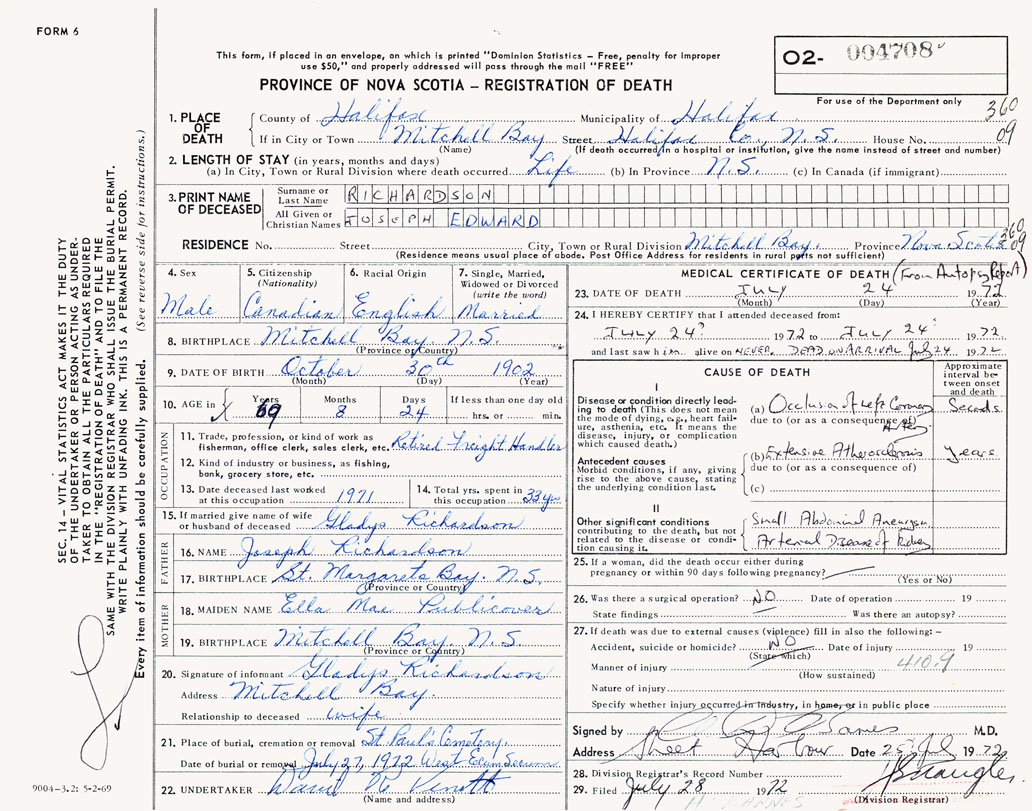 FORM 6
This form, if placed in an envelope, on which is printed "Dominion Statistics – Free, penalty for improper
use $50," and properly addressed will pass through the mail "FREE"
O2- 004708
For use of the Department only
PROVINCE OF NOVA SCOTIA – REGISTRATION OF DEATH
360
09
1. PLACE OF DEATH
County of Halifax Municipality of Halifax
If in City or Town Mitchell Bay Street Halifax Co., N.S. House No.
(Name) (If death occurred in a hospital or institution, give the name instead of street and number)
2. LENGTH OF STAY (in years, months and days)
(a) In City, Town or Rural Division where death occurred Life (b) In Province N.S. (c) In Canada (if immigrant)
3. PRINT NAME OF DECEASED
Surname or Last Name RICHARDSON
All Given or Christian Names JOSEPH EDWARD
360
09
RESIDENCE No. Street City, Town or Rural Division Mitchell Bay. Province Nova Scotia
(Residence means usual place of abode. Post Office Address for residents in rural parts not sufficient)
4. Sex
Male
5. Citizenship (Nationality)
Canadian
6. Racial Origin
English
7. Single, Married, Widowed or Divorced (write the word)
Married
8. BIRTHPLACE Mitchell Bay. N.S.
(Province or Country)
9. DATE OF BIRTH October 30th 1902
(Month) (Day) (Year)
10. AGE in Years 69 Months 8 Days 24 If less than one day old
hrs. or min.
OCCUPATION
11. Trade, profession, or kind of work as
fisherman, office clerk, sales clerk, etc. Retired Freight Handler
12. Kind of industry or business, as fishing,
bank, grocery store, etc.
13. Date deceased last worked
at this occupation 1971
14. Total yrs. spent in
this occupation 33 yrs
15. If married give name of wife
or husband of deceased Gladys Richardson
FATHER
16. NAME Joseph Richardson
17. BIRTHPLACE St. Margarets Bay. N.S.
(Province or Country)
MOTHER
18. MAIDEN NAME Ella Mae Publicover
19. BIRTHPLACE Mitchell Bay, N.S.
(Province or Country)
20. Signature of informant Gladys Richardson
Address Mitchell Bay.
Relationship to deceased wife
21. Place of burial, cremation or removal St Paul's Cemetery.
Date of burial or removal July 27, 1972 West
22. UNDERTAKER
(Name and address)
MEDICAL CERTIFICATE OF DEATH (From Autopsy Report)
23. DATE OF DEATH JULY 24 1972
(Month) (Day) (Year)
24. I HEREBY CERTIFY that I attended deceased from:
JULY 24? 1972 to JULY 24 1972
and last saw him alive on NEVER. DEAD ON ARRIVAL July 24 1972
CAUSE OF DEATH
Approximate interval between onset and death
I
Disease or condition directly leading to death (This does not mean the mode of dying, e.g., heart failure, asthenia, etc. It means the disease, injury, or complication which caused death.)
(a) Occlusion of Left Coronary Artery Seconds
due to (or as a consequence of)
Antecedent causes
Morbid conditions, if any, giving rise to the above cause, stating the underlying condition last.
(b) Extensive Atherosclerosis years
due to (or as a consequence of)
(c)
II
Other significant conditions
contributing to the death, but not related to the disease or condition causing it.
Small Abdominal Aneurysm
Arterial Disease of Kidney
25. If a woman, did the death occur either during
pregnancy or within 90 days following pregnancy?
(Yes or No)
26. Was there a surgical operation? NO Date of operation 19
State findings Was there an autopsy?
27. If death was due to external causes (violence) fill in also the following: –
Accident, suicide or homicide? NO Date of injury 19
(State which)
410.9
Manner of injury
(How sustained)
Nature of injury
Specify whether injury occurred in industry, in home, or in public place
Signed by M.D.
Address Sheet Harbour Date 25 Jul 1972
28. Division Registrar's Record Number
29. Filed July 28 1972
(Division Registrar)
SEC. 14 – VITAL STATISTICS ACT MAKES IT THE DUTY
OF THE UNDERTAKER OR PERSON ACTING AS UNDER-
TAKER TO OBTAIN ALL THE PARTICULARS REQUIRED
IN THE "REGISTRATION OF DEATH" AND TO FILE THE
SAME WITH THE DIVISION REGISTRAR WHO SHALL ISSUE THE BURIAL PERMIT.
WRITE PLAINLY WITH UNFADING INK. THIS IS A PERMANENT RECORD.
Every item of information should be carefully supplied. (See reverse side for instructions.)
9004-3.2: 5-2-69